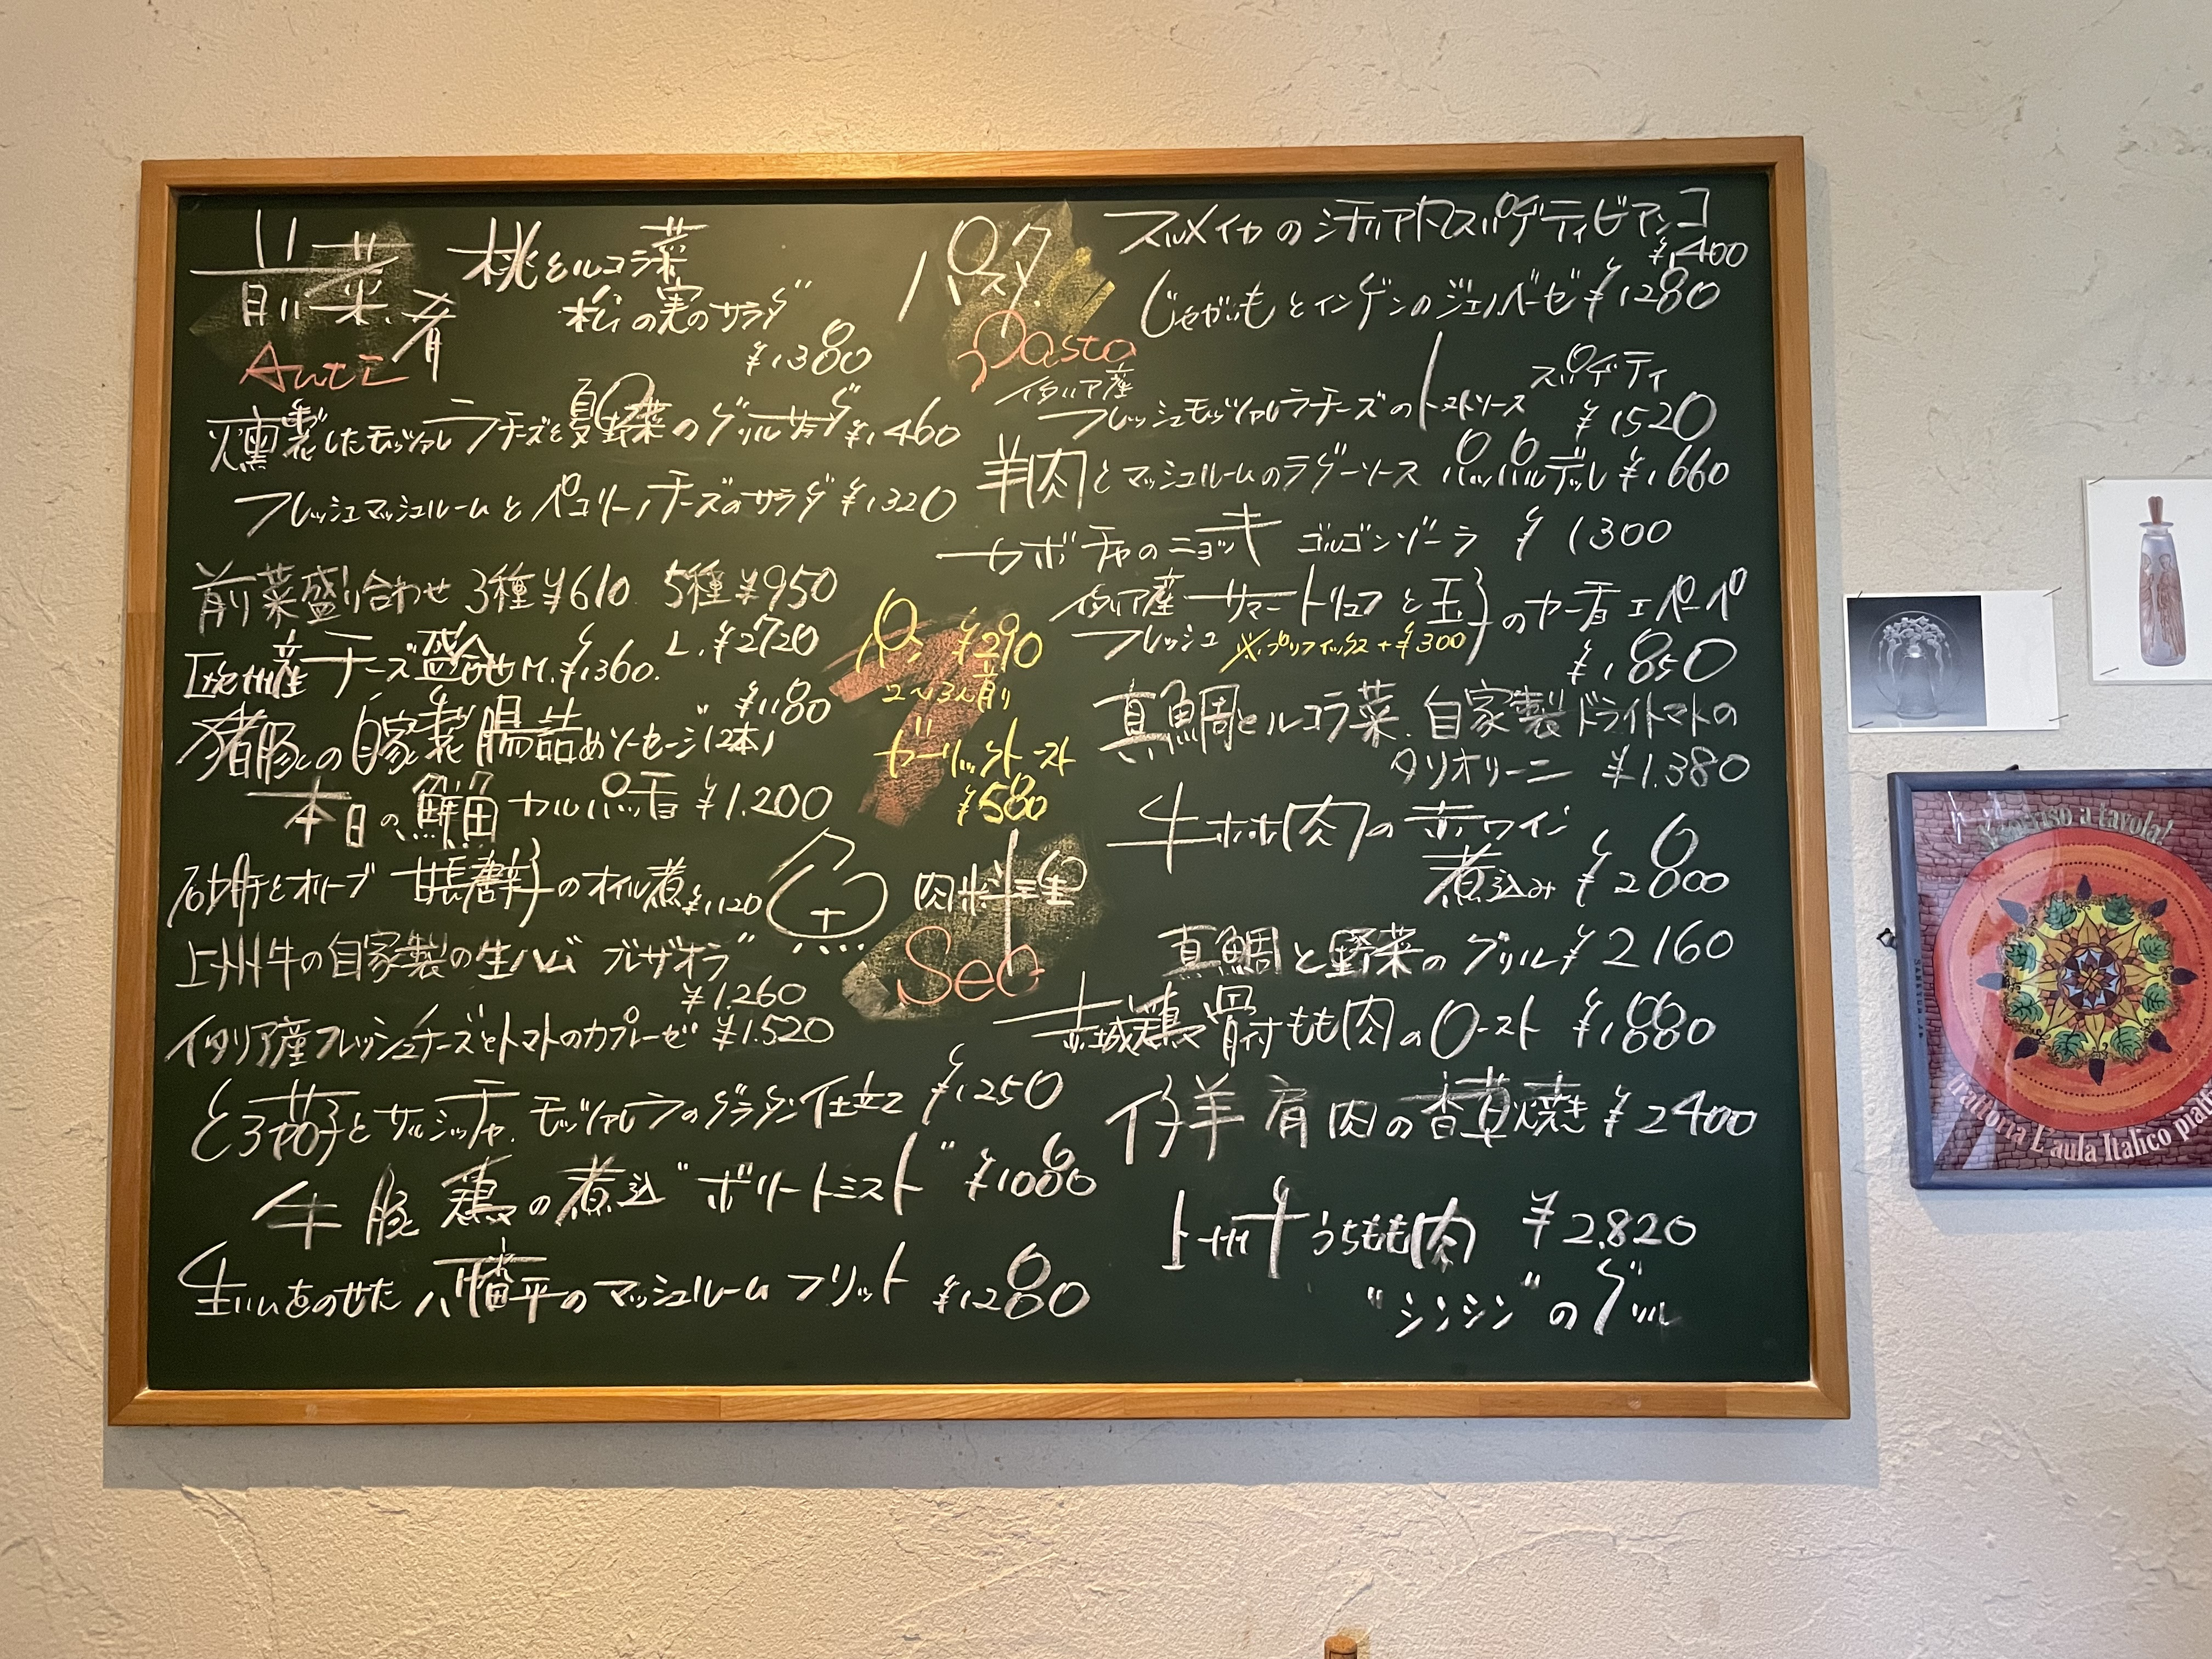 前菜.肴
Anti
桃とルコラ菜
松の実のサラダ
¥1380
燻製したモッツァレラチーズと夏野菜のグリルサラダ ¥1,460
フレッシュマッシュルームとペコリーノチーズのサラダ ¥1320
前菜盛り合わせ 3種 ¥610. 5種 ¥950
欧州産チーズ盛合せ M.¥1360. L.¥2720
猪豚の自家製腸詰めソーセージ(2本) ¥1180
本日の鮮魚カルパッチョ ¥1.200
砂肝とオリーブ 甘長唐辛子のオイル煮 ¥1120
上州牛の自家製の生ハム ブレザオラ"
¥1.260
イタリア産フレッシュチーズとトマトのカプレーゼ ¥1.520
とろ茄子とサルシッチャ.モッツァレラのグラタン仕立て ¥1250
牛 豚 鶏の煮込"ボリートミスト" ¥1080
生ハムをのせた八幡平のマッシュルーム フリット ¥1280
パスタ.
Pasta
スルメイカのシチリア風スパゲティビアンコ
¥1,400
じゃがいもとインゲンのジェノベーゼ ¥1280
イタリア産
フレッシュモッツァレラチーズのトマトソース スパゲティ
¥1520
羊肉とマッシュルームのラグーソース パッパルデッレ ¥1660
カボチャのニョッキ ゴルゴンゾーラ ¥1300
イタリア産 サマートリュフと玉子のカーチョエペーペ
フレッシュ ※プリフィックス+¥300
¥1,850
真鯛とルコラ菜.自家製ドライトマトの
タリオリーニ ¥1.380
パン ¥290
2〜3人前
ガーリックトースト
¥580
魚 肉料理
Sec
牛ホホ肉の赤ワイン
煮込み ¥2800
真鯛と野菜のグリル ¥2160
赤城鶏骨付もも肉のロースト ¥1880
仔羊肩肉の香草焼き ¥2400
上州牛うちもも肉 ¥2.820
"シンシン"のグリル
a tavola!
Trattoria L'aula Italico